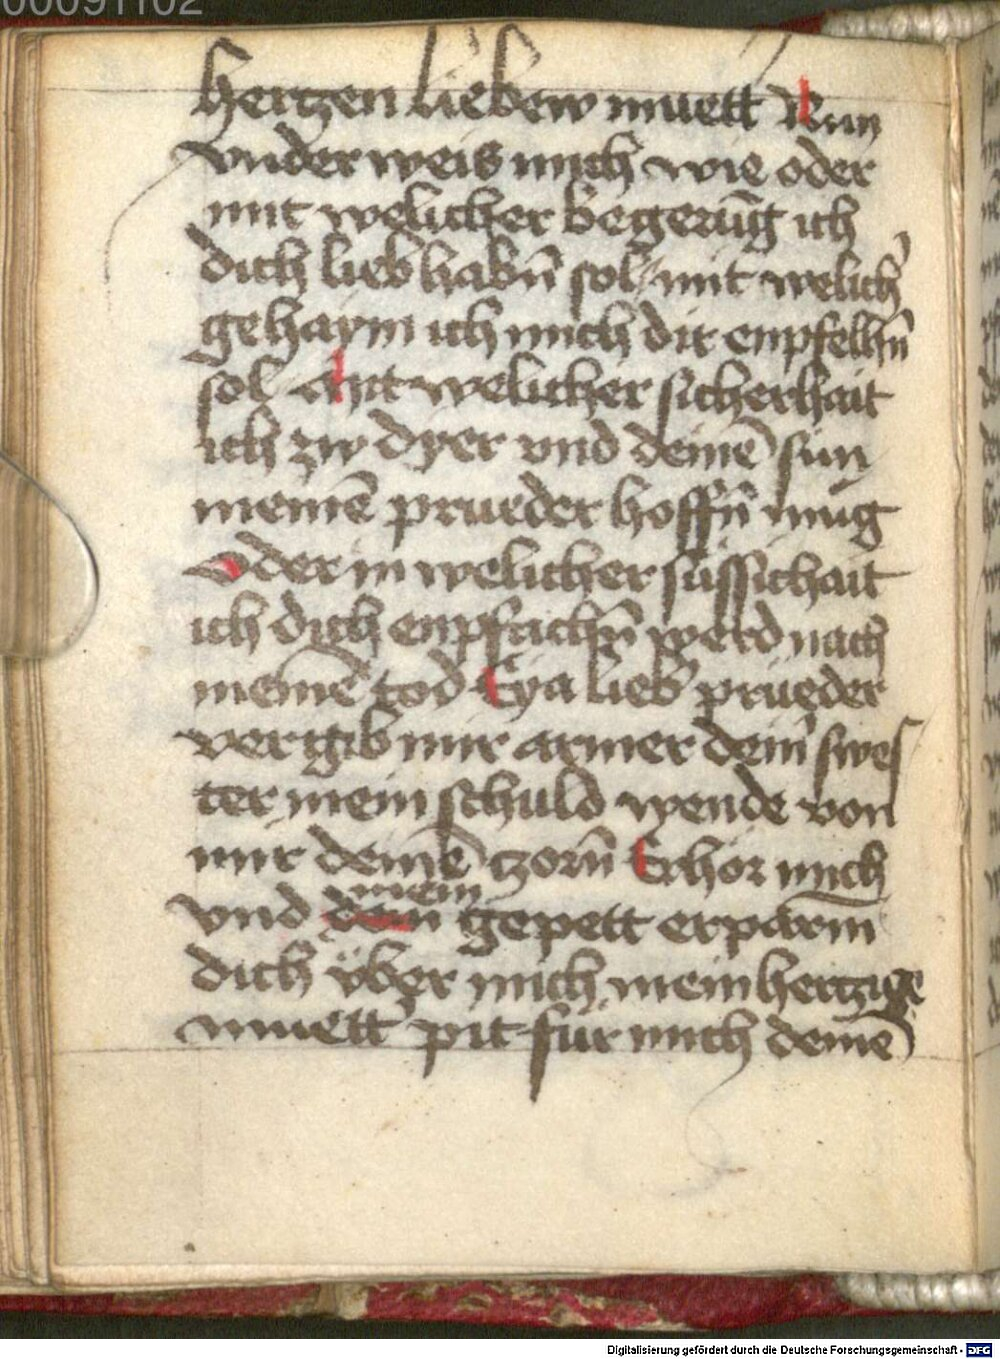 00091102
hertzen liebew muett Nun
vnder weis mich wie oder
mit welicher begerūg ich
dich lieb habn̄ sol mit welich̾
gehaym ich mich dir enpfelhn̄
sol Mit welicher sicherhait
ich zw dyer vnd deinē sun
meinē prueder hoffn̄ mug
Oder in welicher sussichait
ich dich enpfachn̄ werd nach
meinē tod Eya lieb̾ prueder
vergib mir armer dein̾ swes
ter mein schuld wende von
mir deinē tzorn̄ Erhor mich
vnd mein gepett erparm̄
dich vber mich mein hertzige
muett̾ pit fur mich deinē
Digitalisierung gefördert durch die Deutsche Forschungsgemeinschaft - DFG